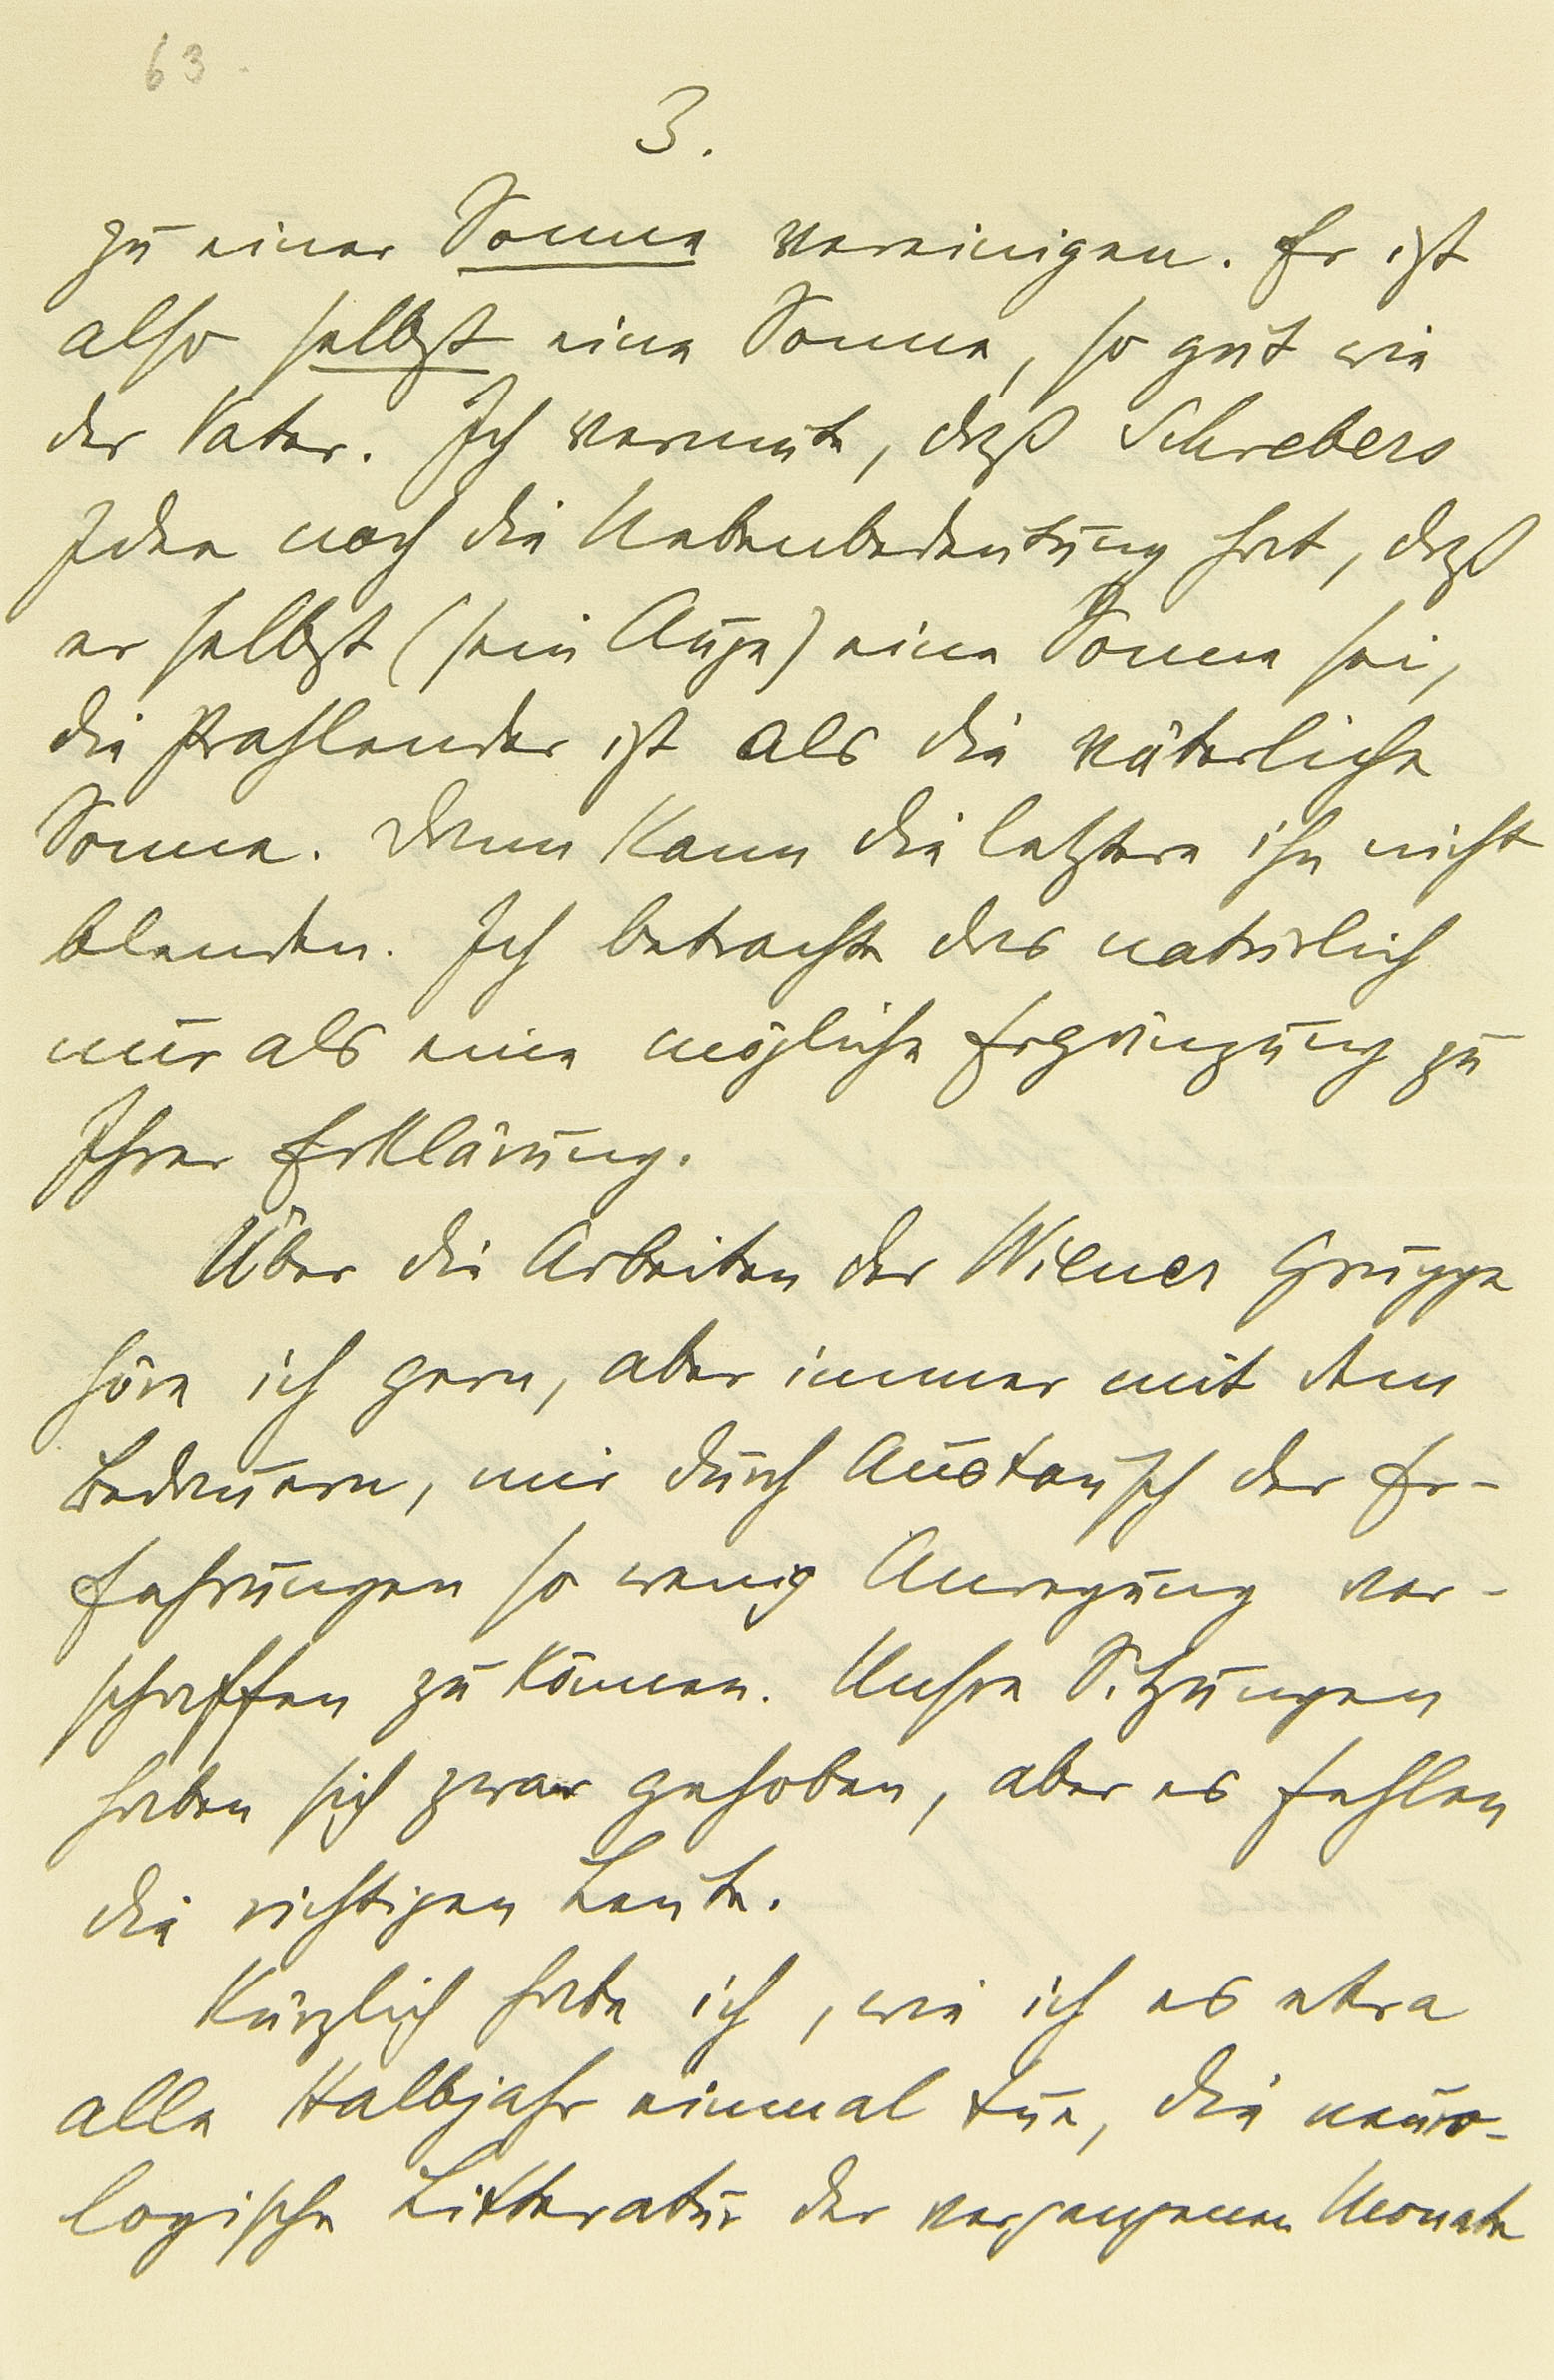 63
3.
zu einer Sonne vereinigen. Er ist
also selbst eine Sonne, so gut wie
der Vater. Ich vermute, daß Schrebers
Idee noch die Nebenbedeutung hat, daß
er selbst (sein Auge) eine Sonne sei,
die strahlender ist als die väterliche
Sonne. Dann kann die letztere ihn nicht
blenden. Ich betrachte das natürlich
nur als eine mögliche Ergänzung zu
Ihrer Erklärung.
Über die Arbeiten der Wiener Gruppe
höre ich gern, aber immer mit dem
Bedauern, mir durch Austausch der Er-
fahrungen so wenig Anregung ver-
schaffen zu können. Unsre Sitzungen
haben sich zwar gehoben, aber es fehlen
die richtigen Leute.
Kürzlich habe ich, wie ich es etwa
alle Halbjahr einmal tue, die neuro-
logische Litteratur der vergangenen Monate